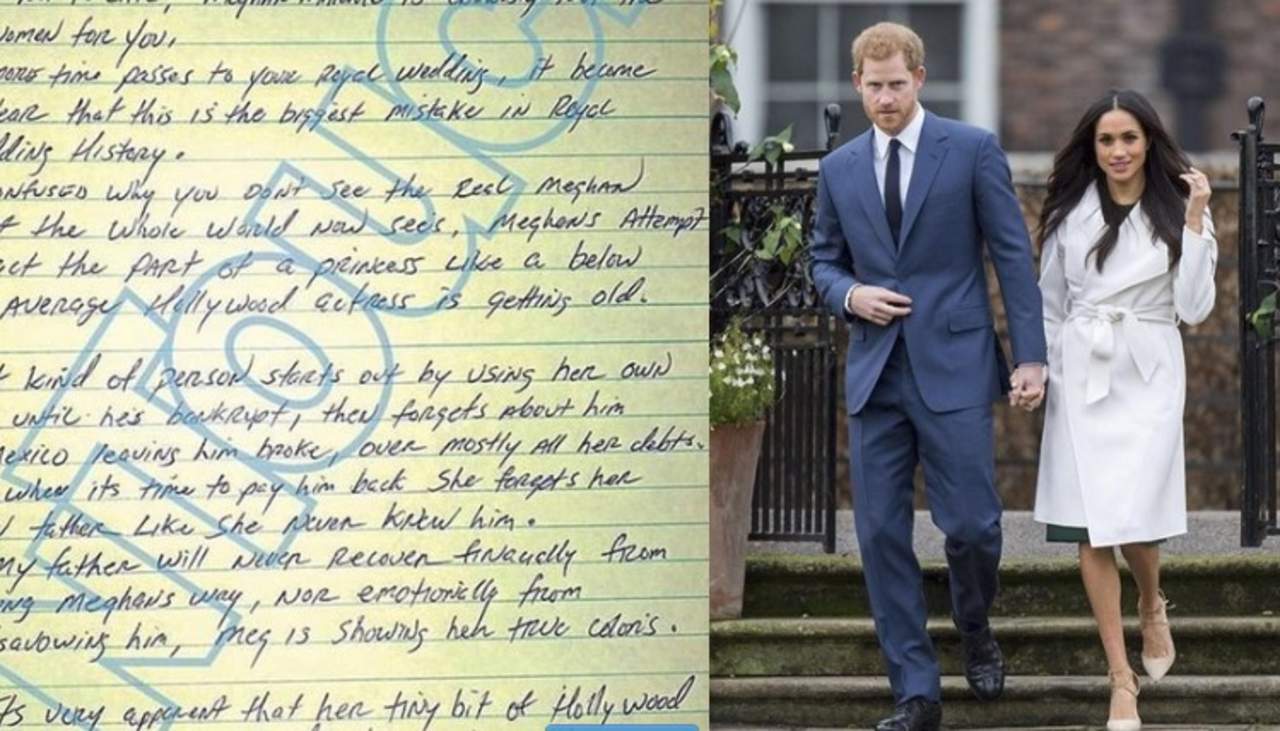 Meghan Markle is not the
women for you.
more time passes to your Royal wedding, it became
ear that this is the biggest mistake in Royal
dding History.
onfused why you don't see the real Meghan
f the whole world now see's, Meghans Attempt
act the PART of a princess like a below
average Hollywood actress is getting old.
t kind of person starts out by using her own
until he's bankrupt, then forgets about him
exico leaving him broke, over mostly all her debts.
when its time to pay him back She forgets her
father Like She never Knew him.
my father will never recover finaucally from
ng meghans way, nor emotionally from
savowing him, meg is showing her true color's.
ts very apparent that her tiny bit of Hollywood